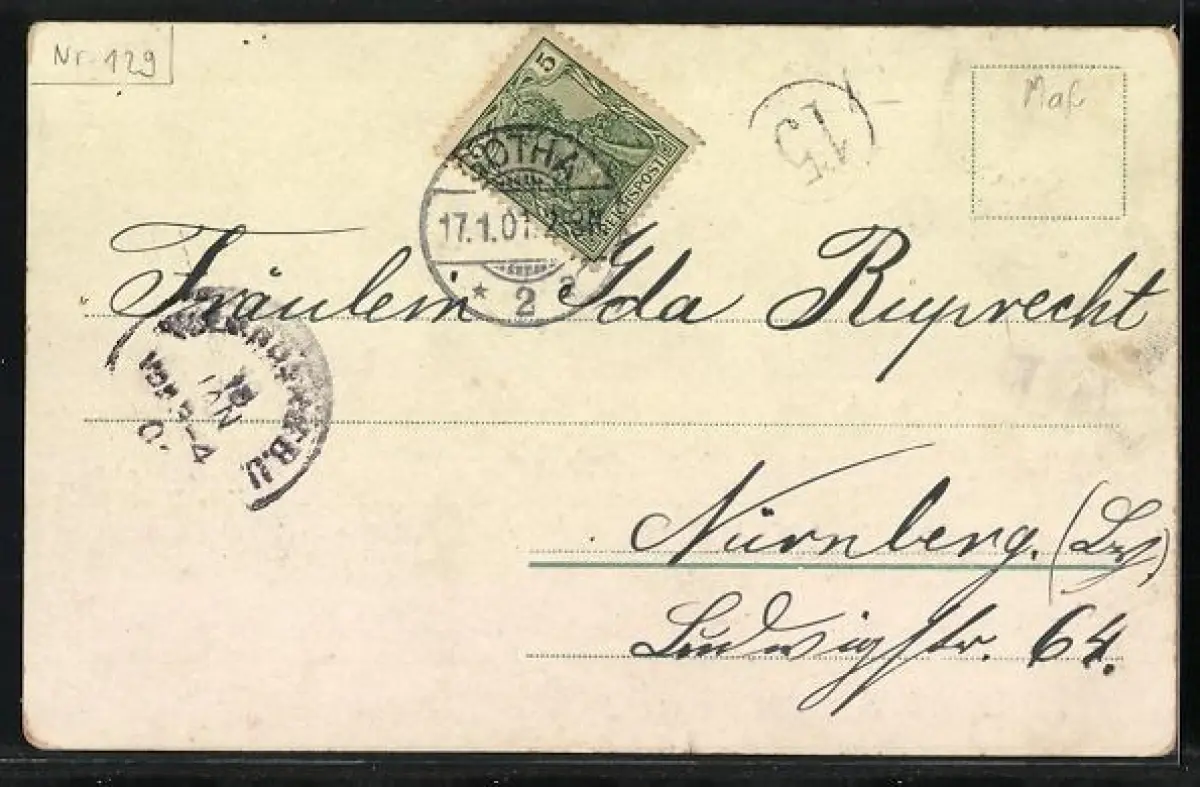 Nr. 129
5
REICHSPOST
GOTHA
17.1.01.
* 2
15
Fräulein Ida Ruprecht
JAN
Nürnberg.
Ludwigstr. 64.